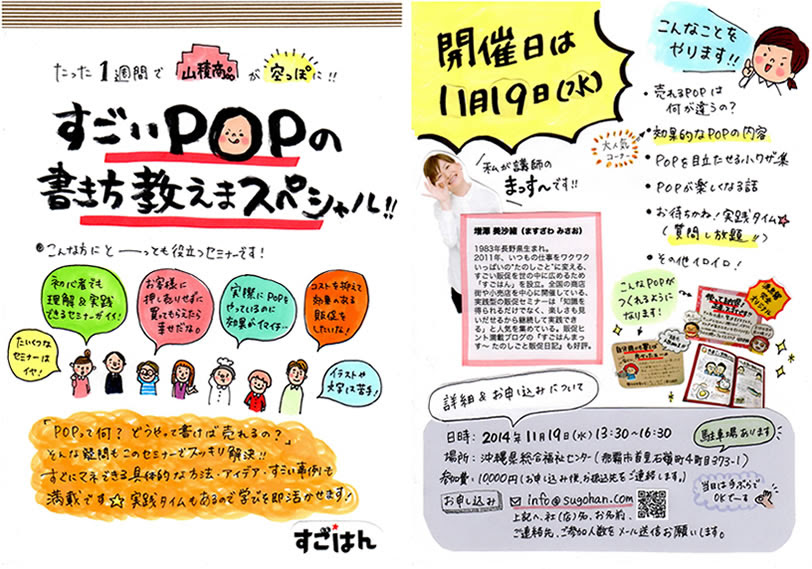 たった1週間で山積商品が空っぽに!!
すごいPOPの
書き方教えまスペシャル!!
こんな方にとーーっても役立つセミナーです!
初心者でも
理解&実践
できるセミナーがイイ!
お客様に
押し売りせずに
買ってもらえたら
幸せだな。
実際にPOPを
やっているのに
効果がイマイチ…
コストを抑えて
効果のある
販促を
したいな!
たいくつな
セミナーは
イヤ!
イラストや
文字は苦手!
「POPって何?どうやって書けば売れるの?」
そんな疑問もこのセミナーでスッキリ解決!!
すぐにマネできる具体的な方法・アイデア・すごい事例も
満載です☆実践タイムもあるので学びを即活かせます!
すごはん
開催日は
11月19日(水)
こんなことを
やります!!
・売れるPOPは
何が違うの?
大人気
コーナー
・効果的なPOPの内容
・POPを目立たせる小ワザ集
・POPが楽しくなる話
・お待ちかね!実践タイム☆
(質問し放題!!)
・その他イロイロ!
私が講師の
まっす〜です!!
増澤 美沙緒(ますざわ みさお)
1983年長野県生まれ。
2011年、いつもの仕事をワクワク
いっぱいの“たのしごと”に変える、
すごい販促を世の中に広めるため
「すごはん」を設立。全国の商店
街や小売店を中心に開催している、
実践型の販促セミナーは「知識を
得られるだけでなく、楽しさも見
いだせるから継続して実践でき
る」と人気を集めている。販促ヒ
ント満載ブログの『すごはんまっ
す〜 たのしごと販促日記』も好評。
こんなPOPが
つくれるように
なります!
詳細&お申し込みについて
日時:2014年11月19日(水)13:30〜16:30
駐車場あります
場所:沖縄県総合福祉センター(那覇市首里石嶺町4丁目373-1)
参加費:10000円(お申し込み後、お振込先をご連絡します。)
当日は手ぶらで
OKでーす
お申し込み
info@sugohan.com
上記へ、社(店)名、お名前、
ご連絡先、ご参加人数をメール送信お願いします。